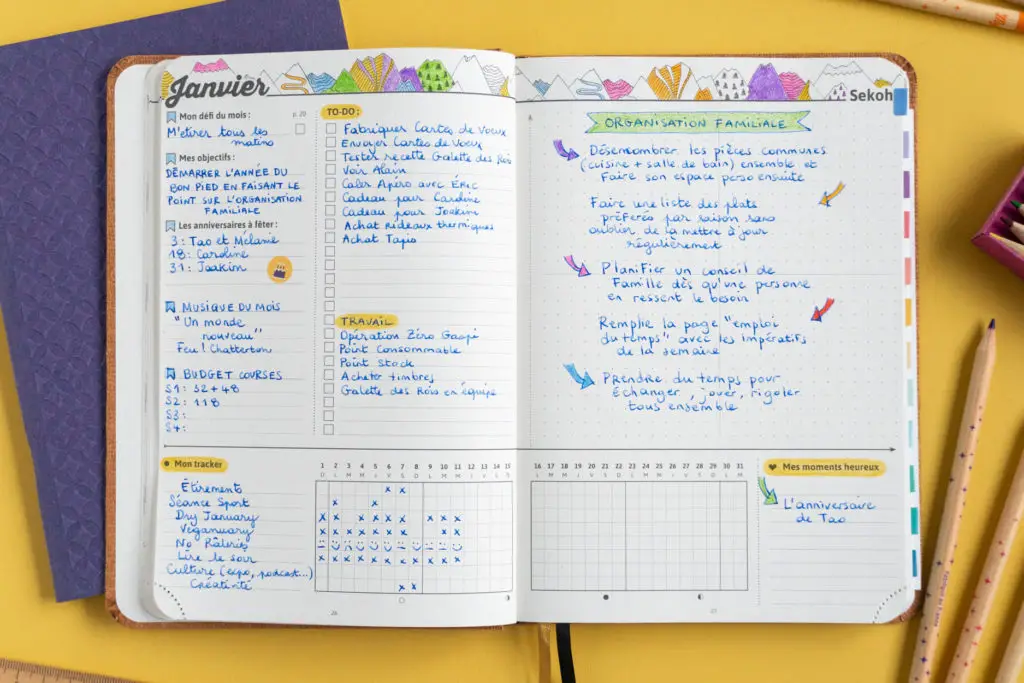 Janvier
Mon défi du mois :
p. 20
M'étirer tous les
matins
Mes objectifs :
DÉMARRER L'ANNÉE DU
BON PIED EN FAISANT LE
POINT SUR L'ORGANISATION
FAMILIALE
Les anniversaires à fêter :
3 : Tao et Mélanie
18 : Caroline
31 : Joakim
MUSIQUE DU MOIS
"Un monde
nouveau"
Feu ! Chatterton
BUDGET COURSES
S1 : 32 + 48
S2 : 118
S3 :
S4 :
TO-DO :
Fabriquer Cartes de Voeux
Envoyer Cartes de Voeux
Tester recette Galette des Rois
Voir Alain
Caler Apéro avec Éric
Cadeau pour Caroline
Cadeau pour Joakim
Achat Rideaux thermiques
Achat Tapis
TRAVAIL
Opération Zéro Gaspi
Point Consommable
Point Stock
Acheter timbres
Galette des Rois en équipe
Mon tracker
1 2 3 4 5 6 7 8 9 10 11 12 13 14 15
D L M M J V S D L M M J V S D
Étirements
Séance Sport
Dry January
Veganuary
No Râleries
Lire le soir
Culture (expo, podcast...)
Créativité
26
Sekoh
ORGANISATION FAMILIALE
Désencombrer les pièces communes
(cuisine + salle de bain) ensemble et
Faire son espace perso ensuite
Faire une liste des plats
préférés par saison sans
oublier de la mettre à jour
régulièrement
Planifier un conseil de
Famille dès qu'une personne
en ressent le besoin
Remplir la page "emploi
du temps" avec les impératifs
de la semaine
Prendre du temps pour
échanger, jouer, rigoler
tous ensemble
16 17 18 19 20 21 22 23 24 25 26 27 28 29 30 31
L M M J V S D L M M J V S D L M
Mes moments heureux
L'anniversaire
de Tao
27